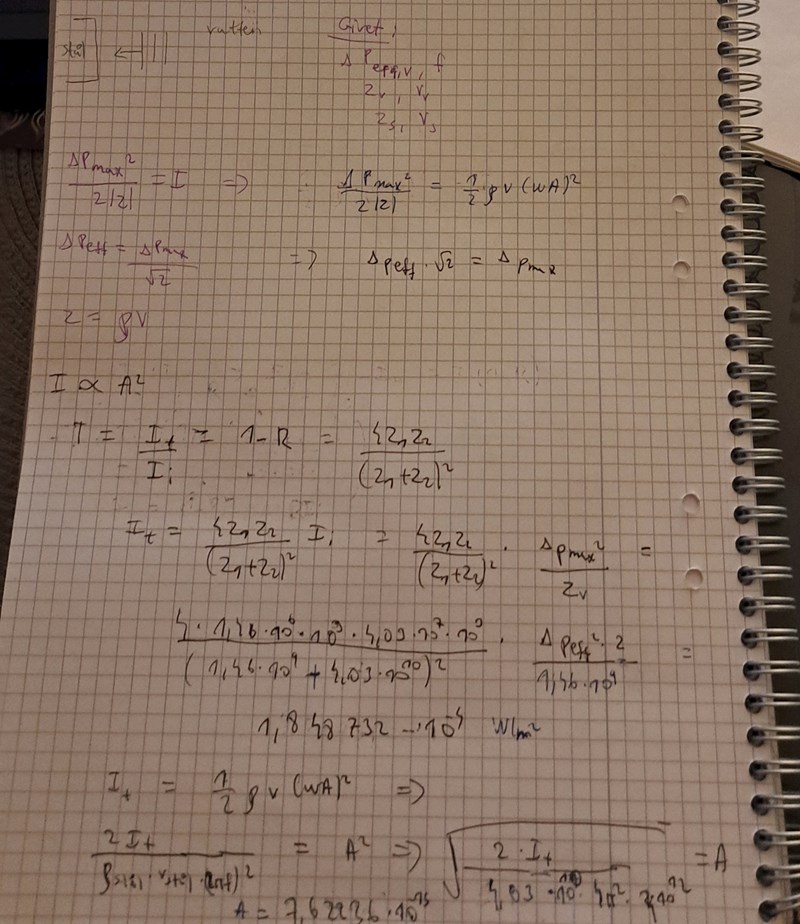 vatten Givet:
stål ΔP_eff,v, f
Z_v, V_v
Z_s, V_s
ΔP_max² / 2|Z| = I => ΔP_max² / 2|Z| = 1/2 ρ v (ωA)²
ΔP_eff = ΔP_max / √2 => Δp_eff · √2 = Δp_max
Z = ρV
I ∝ A²
T = I_t / I_i = 1-R = 4Z₁Z₂ / (Z₁+Z₂)²
I_t = 4Z₁Z₂ / (Z₁+Z₂)² I_i = 4Z₁Z₂ / (Z₁+Z₂)² · Δp_max² / Z_v =
4 · 1,46·10⁶·10³ · 4,03·10⁷·10³ / (1,46·10⁹ + 4,03·10¹⁰)² · Δp_eff² · 2 / 1,46·10⁹ =
1,848732 ... 10⁻⁴ W/m²
I_t = 1/2 ρ v (ωA)² =>
2I_t / ρ_stål · v_stål · (2πf)² = A² => √ 2 · I_t / 4,03 · 10¹⁰ · 4π² · 10¹² = A
A = 7,62236 · 10